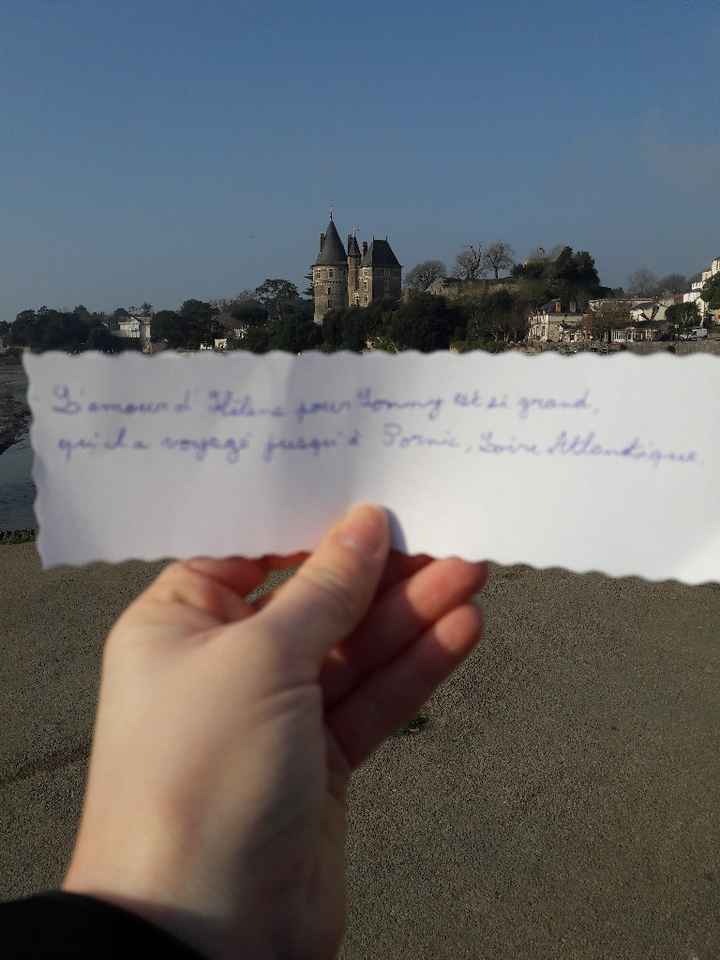 L'amour d'Hélène pour Tommy est si grand,
qu'il a voyagé jusqu'à Pornic, Loire Atlantique.